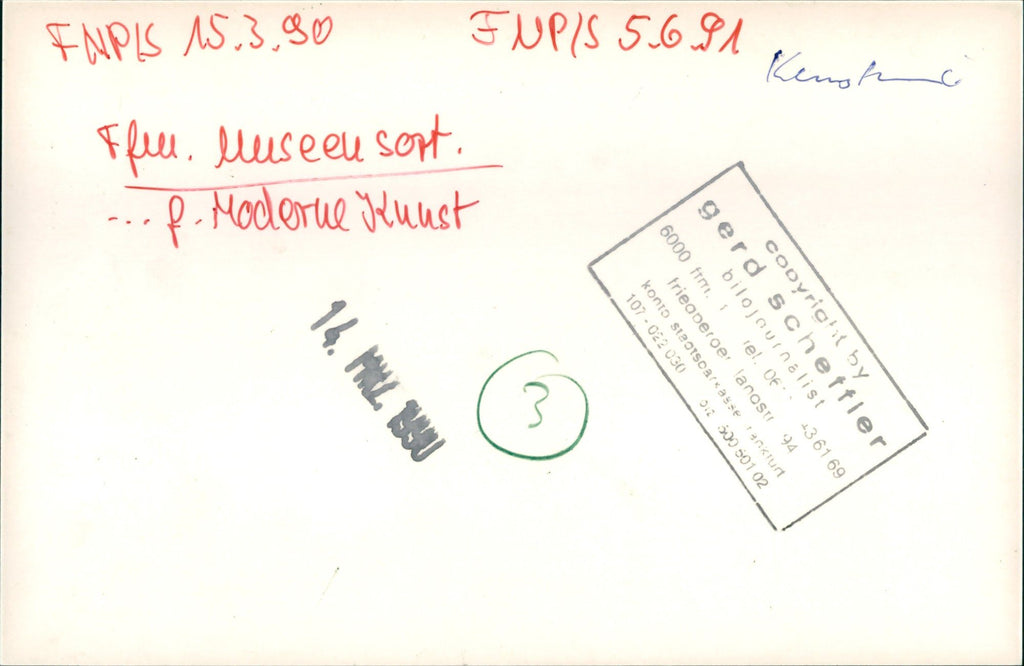 FNP/S 15.3.90
FNP/S 5.6.91
Ffm. Museen sort.
... f. Moderne Kunst
14. MRZ. 1990
3
copyright by
gerd scheffler
bildjournalist
6000 ffm. 1 tel. 06 436169
friedberger landstr. 94
konto stadtsparkasse frankfurt
107-022 030 blz 500 501 02